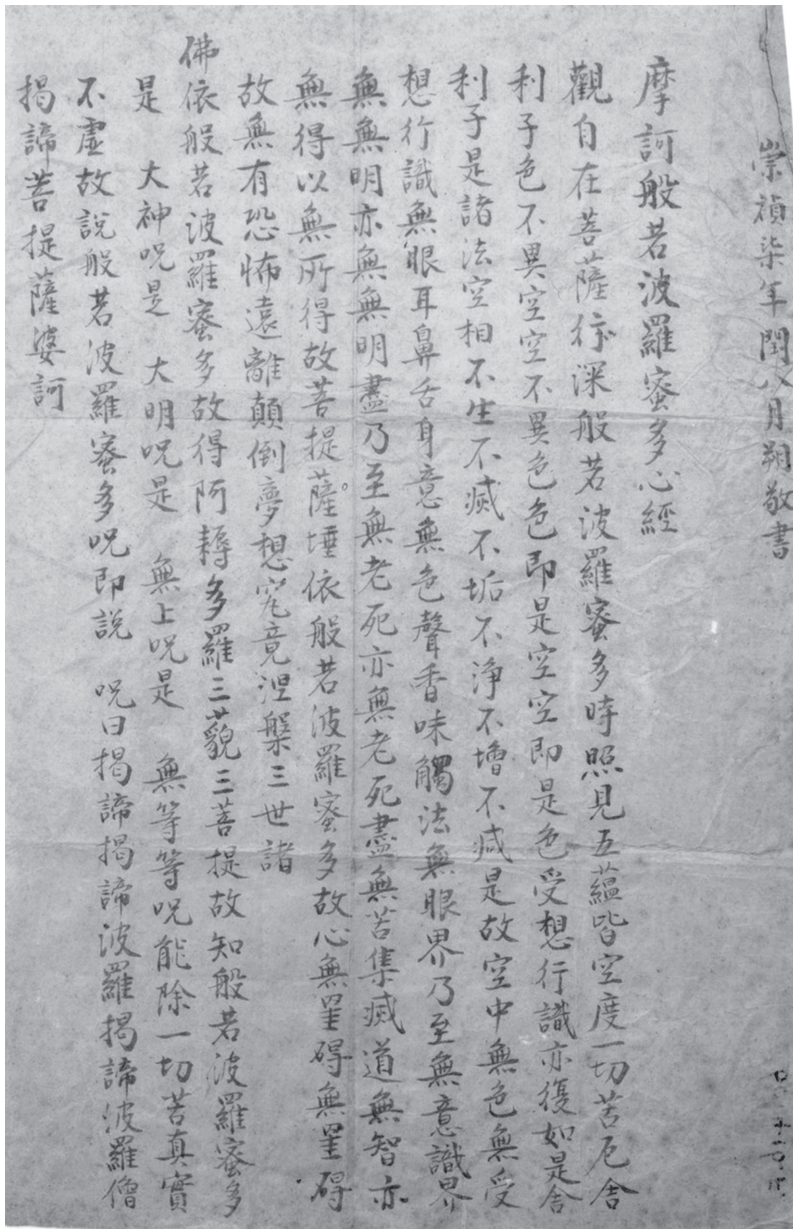 崇禎柒年閏八月朔敬書
摩訶般若波羅蜜多心經
觀自在菩薩行深般若波羅蜜多時照見五蘊皆空度一切苦厄舍
利子色不異空空不異色色即是空空即是色受想行識亦復如是舍
利子是諸法空相不生不滅不垢不淨不增不減是故空中無色無受
想行識無眼耳鼻舌身意無色聲香味觸法無眼界乃至無意識界
無無明亦無無明盡乃至無老死亦無老死盡無苦集滅道無智亦
無得以無所得故菩提薩埵依般若波羅蜜多故心無罣碍無罣碍
故無有恐怖遠離顛倒夢想究竟涅槃三世諸
佛依般若波羅蜜多故得阿耨多羅三藐三菩提故知般若波羅蜜多
是 大神咒是 大明咒是 無上咒是 無等等咒能除一切苦真實
不虛故說般若波羅蜜多咒即說 咒曰揭諦揭諦波羅揭諦波羅僧
揭諦菩提薩婆訶